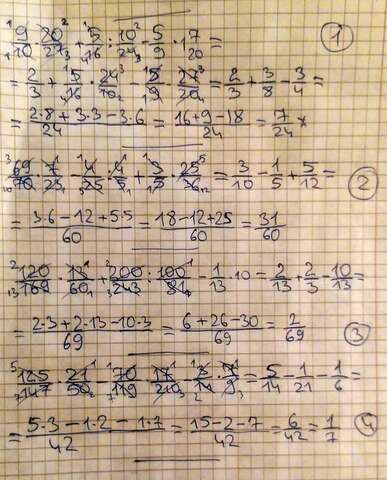 9/10 · 20/27 + 5/16 : 10/24 - 5/9 · 1 7/20 = ①
= 2/3 + 5/16 · 24/10 - 5/9 · 27/20 = 2/3 + 3/8 - 3/4 =
= (2·8 + 3·3 - 3·6)/24 = (16+9-18)/24 = 7/24 *
69/70 · 7/23 - 4/25 : 4/5 + 3/5 · 25/36 = 3/10 - 1/5 + 5/12 = ②
= (3·6 - 12 + 5·5)/60 = (18-12+25)/60 = 31/60
120/169 · 13/60 + 200/243 : 100/81 - 1/13 · 10 = 2/13 + 2/3 - 10/13 =
= (2·3 + 2·13 - 10·3)/69 = (6+26-30)/69 = 2/69 ③
125/147 · 21/50 - 70/119 · 17/210 - 3/14 · 7/9 = 5/14 - 1/21 - 1/6 =
= (5·3 - 1·2 - 1·7)/42 = (15-2-7)/42 = 6/42 = 1/7 ④